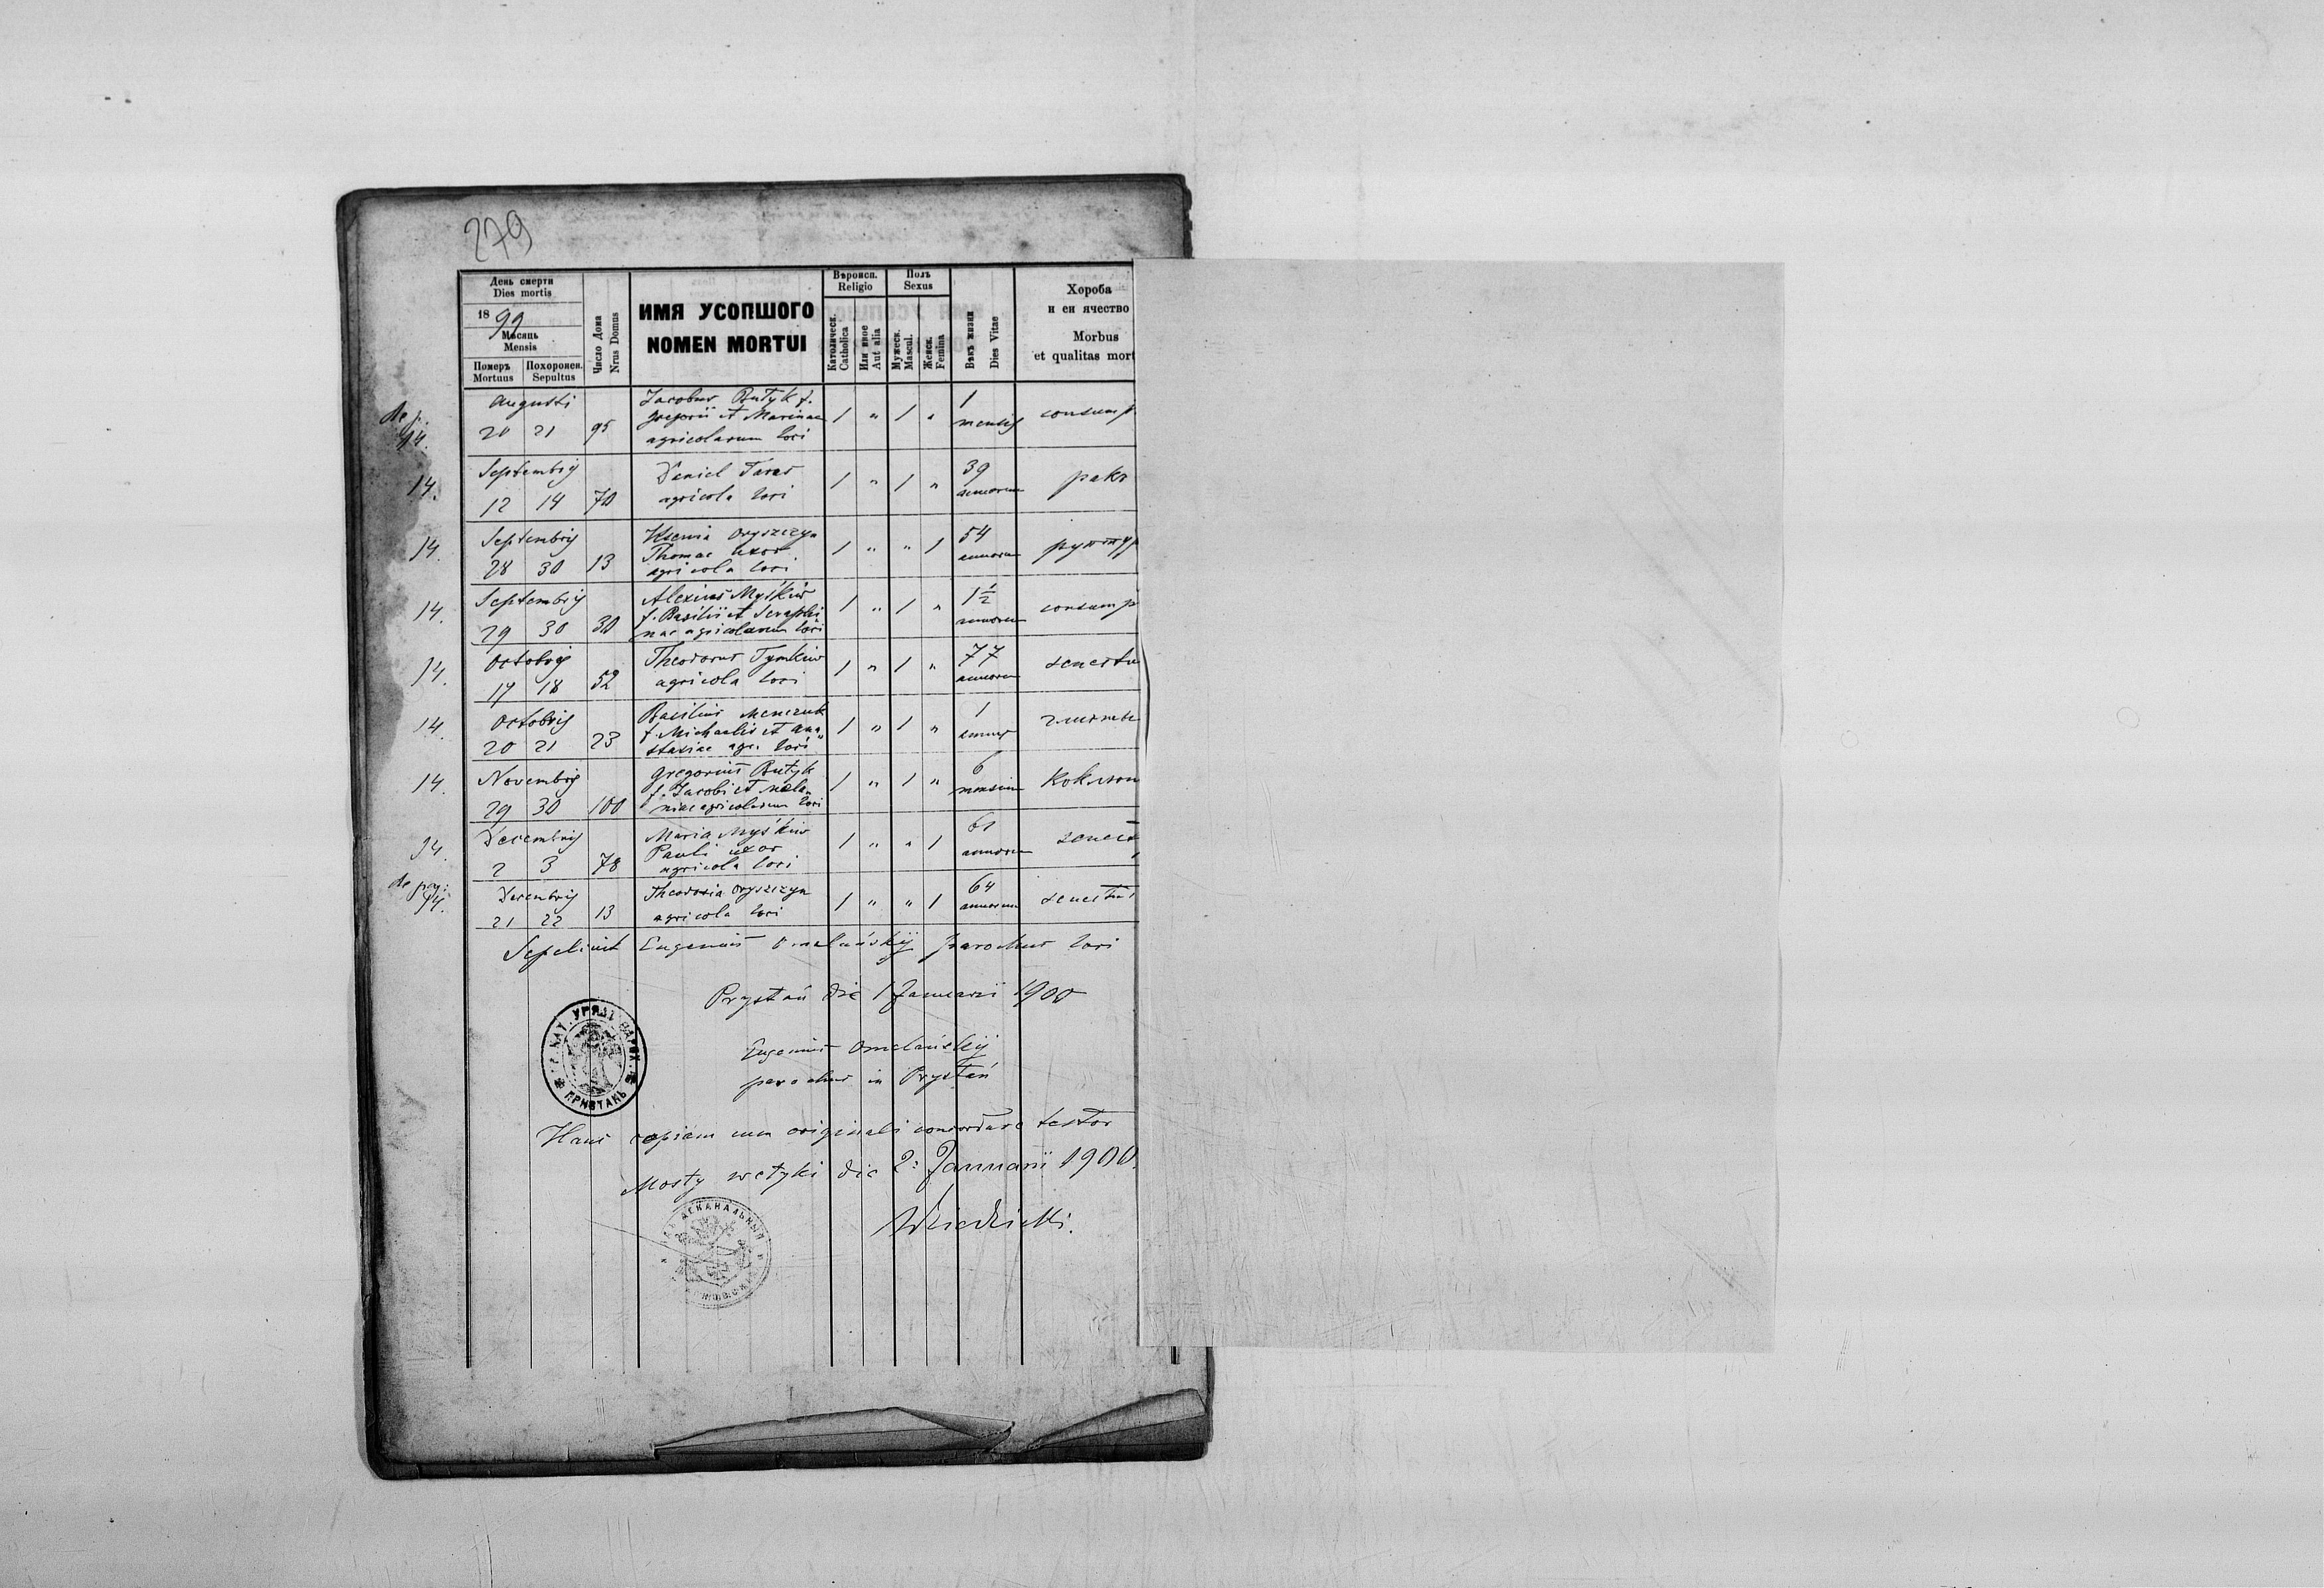 279
День смерти
Dies mortis
1899
Мѣсяць
Mensis
Померъ Похоронен.
Mortuus Sepultus
Число Дома
Nrus Domus
ИМЯ УСОПШОГО
NOMEN MORTUI
Вѣроисп.
Religio
Католическ.
Catholica
Или иное
Aut alia
Полъ
Sexus
Мужеск.
Mascul.
Женск.
Femina
Вѣкъ жизни
Dies Vitae
Хороба
и еи ячество
Morbus
et qualitas mort
de p.
14.
Augusti
20 21 95
Jacobus Butyk f.
Gregorii et Marinae
agricolarum loci
1 " 1 "
1
mensis
consump
14.
Septembris
12 14 70
Daniel Taras
agricola loci
1 " 1 "
39
annorum
ракъ
14.
Septembris
28 30 13
Ksenia Oryszczyn
Thomae uxor
agricola loci
1 " " 1
54
annorum
руптур
14.
Septembris
29 30 30
Alexius Myśkiw
f. Basilii et Seraphi
nae agricolarum loci
1 " 1 "
1 1/2
annorum
consump
14.
Octobris
17 18 52
Theodorus Tymkiw
agricola loci
1 " 1 "
77
annorum
senectu
14.
Octobris
20 21 23
Basilius Menczuk
f. Michaelis et Ana„
stasiae agr. loci
1 " 1 "
1
annus
14.
Novembris
29 30 100
Gregorius Butyk
f. Jacobi et Mela„
niae agricolarum loci
1 " 1 "
6
mensium
коклюш
94.
Decembris
2 3 78
Maria Myśkiw
Pauli uxor
agricola loci
1 " " 1
61
annorum
senect
de pag:
94.
Decembris
21 22 13
Theodosia Oryszczyn
agricola loci
1 " " 1
64
annorum
senectu
Sepelivit Eugenius Omelańskij parochus loci
Prystań die 1 Januarii 1900
Eugenius Omelańskij
parochus in Prystań
Hanc copiam cum originali concordare testor
Mosty wełyki die 2: Januarii 1900.